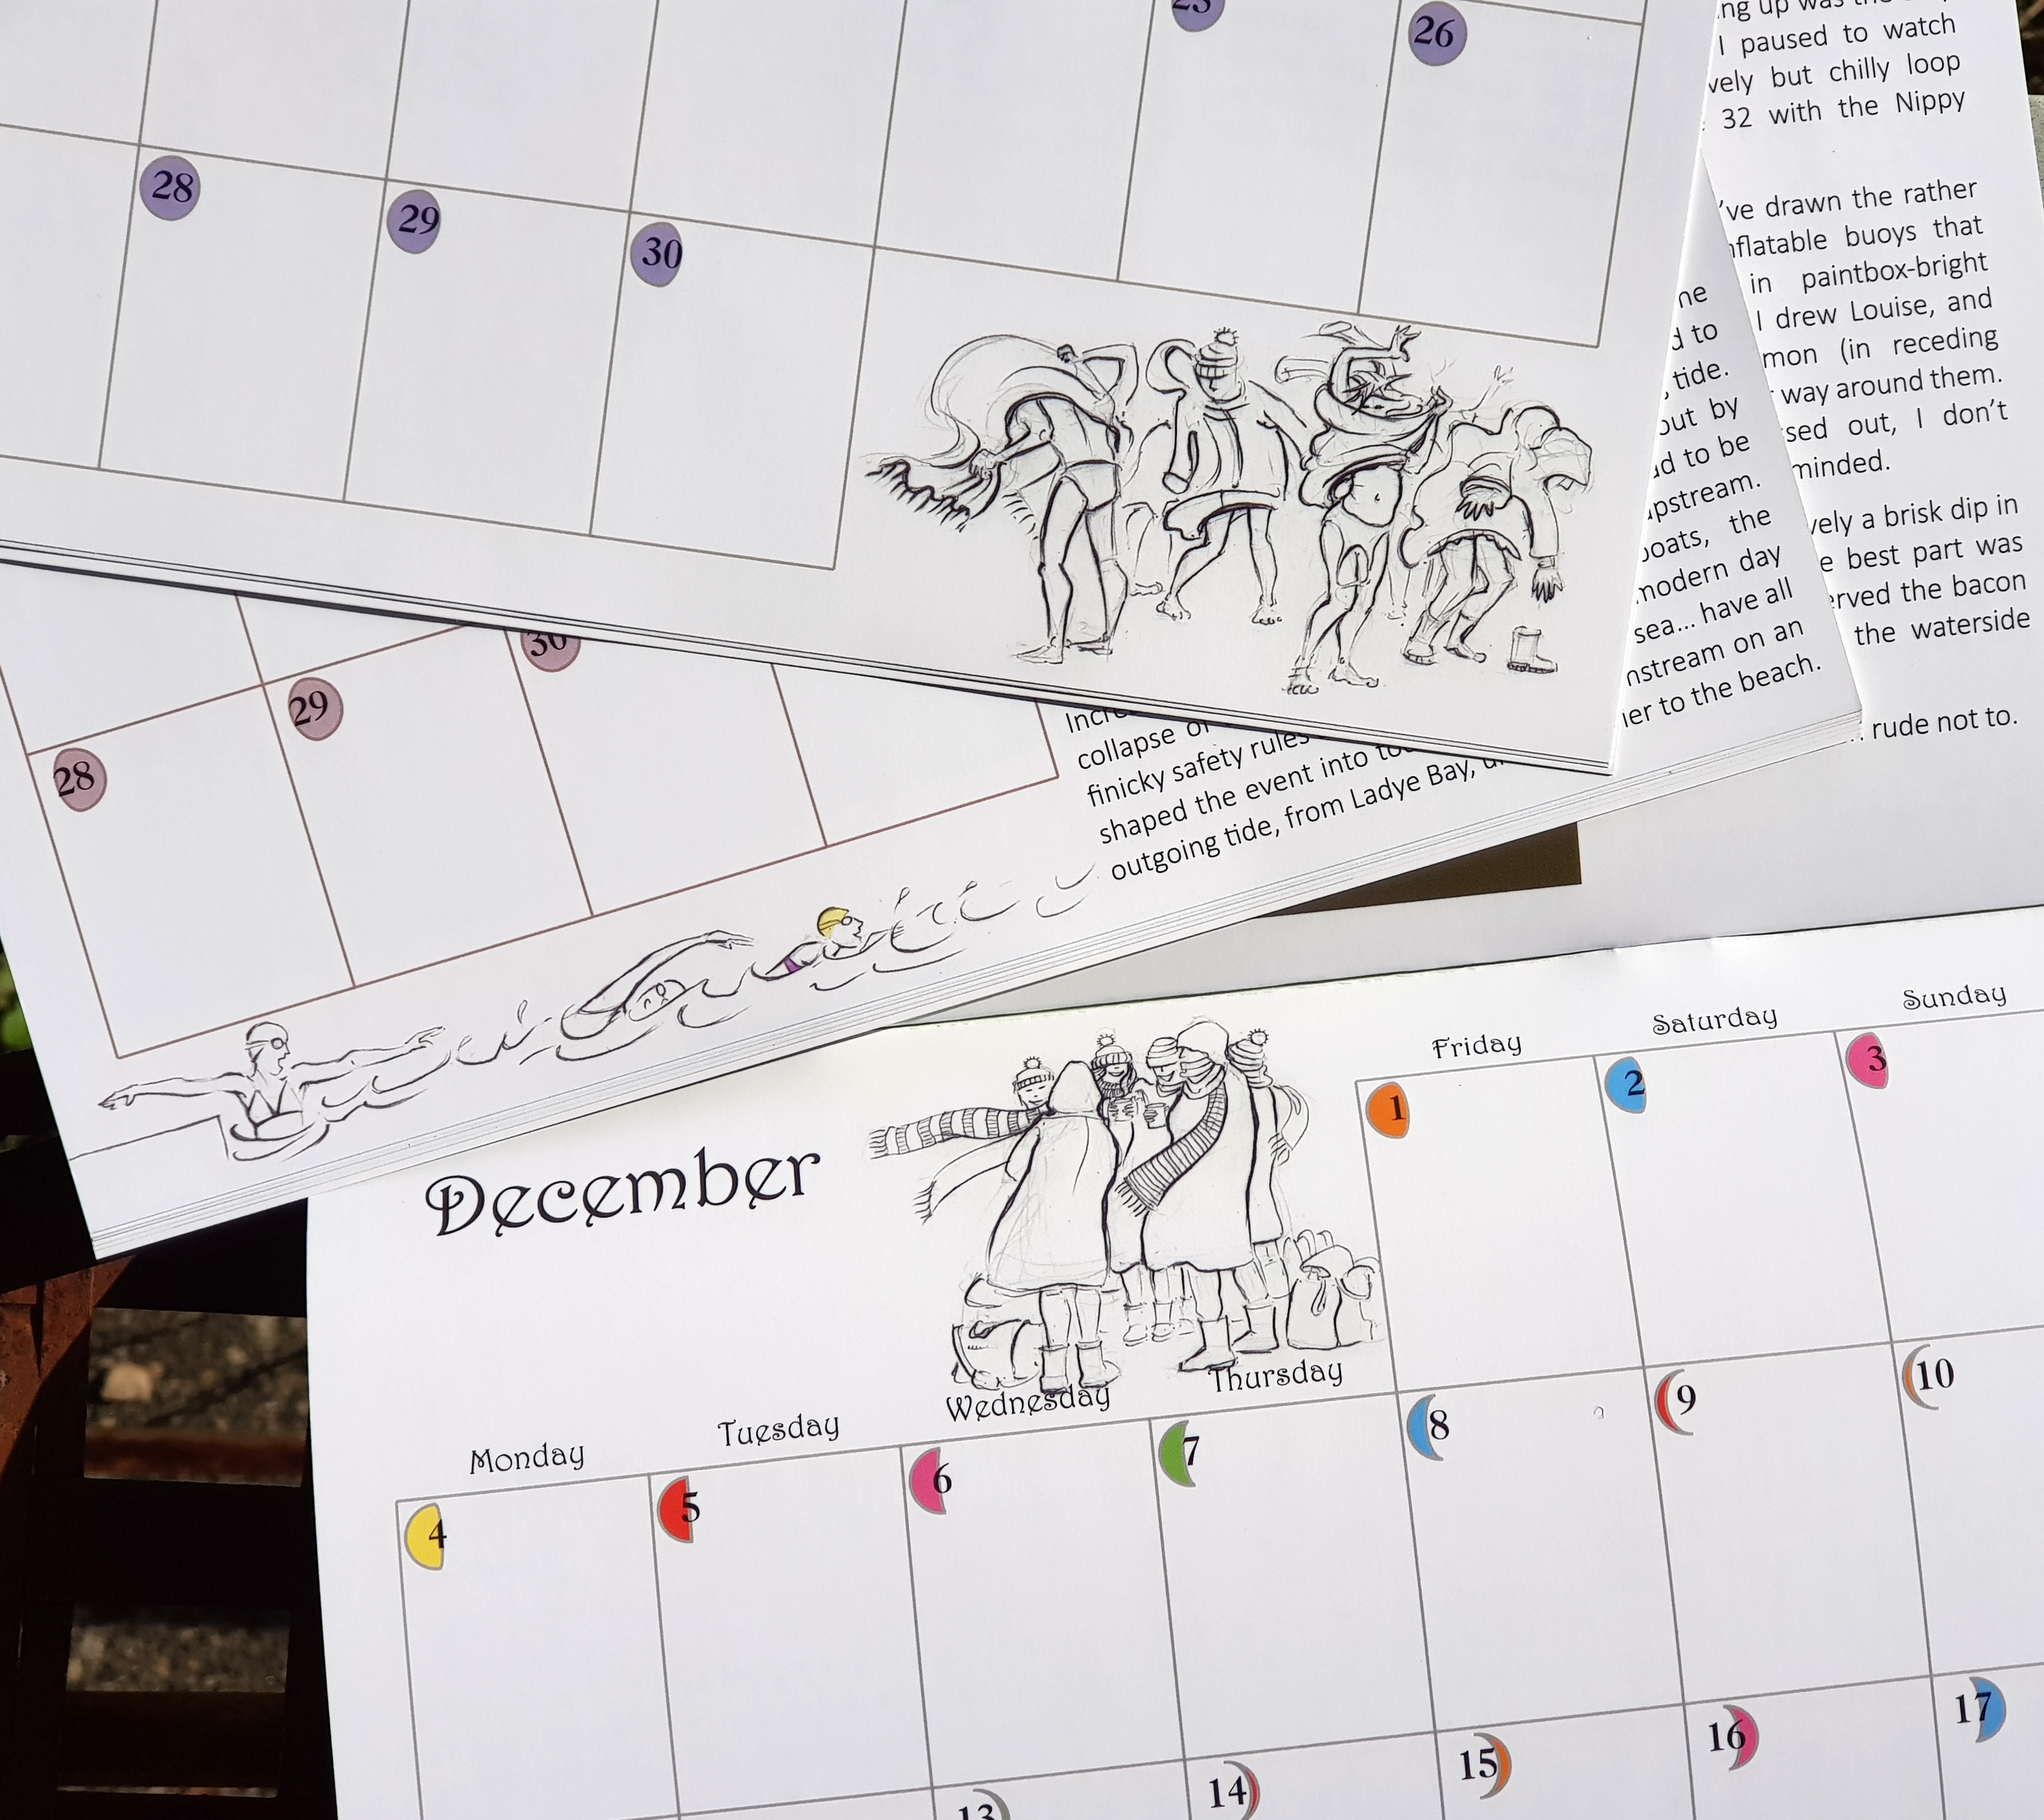 26
28
29
30
up was the
I paused to watch
but chilly loop
32 with the Nippy
've drawn the rather
buoys that
in paintbox-bright
I drew Louise, and
(in receding
way around them.
out, I don't
minded.
a brisk dip in
best part was
the bacon
the waterside
rude not to.
to
tide.
out by
to be
upstream.
boats, the
modern day
sea... have all
on an
to the beach.
30
29
28
collapse of
finicky safety rules
shaped the event into
outgoing tide, from Ladye Bay,
December
Monday
Tuesday
Wednesday
Thursday
Friday
Saturday
Sunday
1
2
3
4
5
6
7
8
9
10
13
14
15
16
17